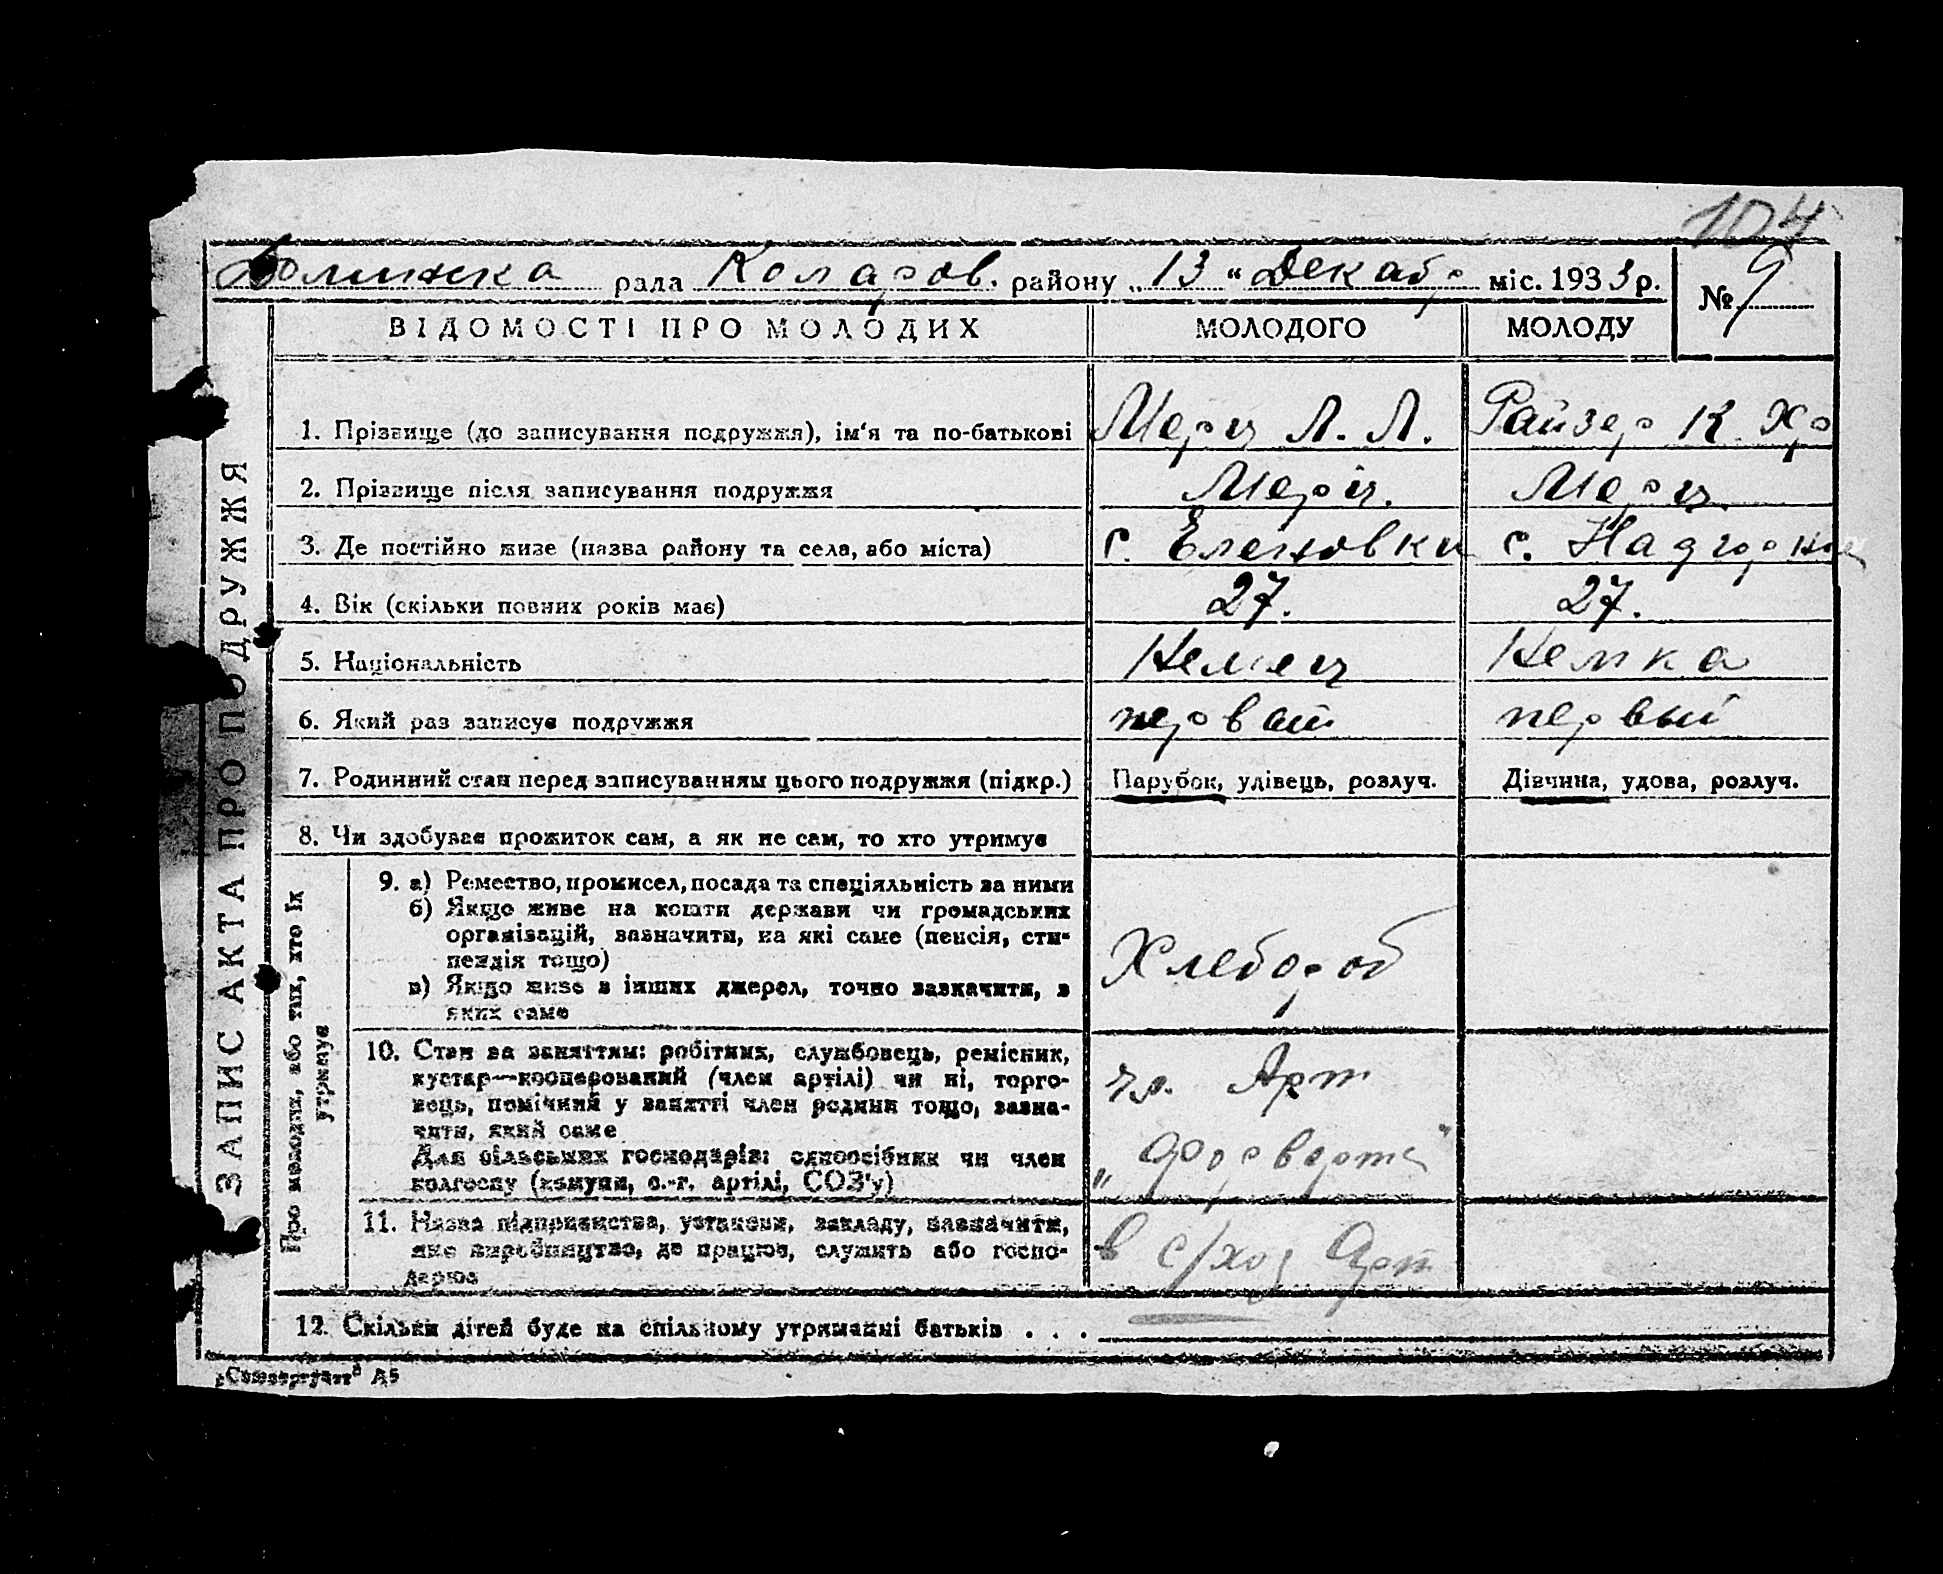 104
рада Коларов. району „13“ Декабр міс. 1933 р. № 9
ВІДОМОСТІ ПРО МОЛОДИХ МОЛОДОГО МОЛОДУ
ЗАПИС АКТА ПРО ПОДРУЖЖЯ
1. Прізвище (до записування подружжя), ім‘я та по-батькові Мерц Л. Л. Райзер К. Хр
2. Прізвище після записування подружжя Мерц. Мерц
3. Де постійно живе (назва району та села, або міста) с. Еленовки с. Надгорное
4. Вік (скільки повних років має) 27. 27.
5. Національність Немец Немка
6. Який раз записує подружжя первый первый
7. Родинний стан перед записуванням цього подружжя (підкр.) Парубок, удівець, розлуч. Дівчина, удова, розлуч.
8. Чи здобуває прожиток сам, а як не сам, то хто утримує
Про молодих, або тих, хто їх
утримує
9. а) Ремество, промисел, посада та спеціяльність за ними
б) Якщо живе на кошти держави чи громадських
організацій, зазначити, на які саме (пенсія, сти-
пендія тощо)
в) Якщо живе з інших джерел, точно зазначити, з
яких саме
Хлебороб
10. Стан за заняттям: робітник, службовець, ремісник,
кустар—кооперований (член артілі) чи ні, торго-
вець, помічний у занятті член родини тощо, зазна-
чити, який саме
Для сільських господарів: одноосібник чи член
колгоспу (комуни, с.-г. артілі, СОЗ'у)
чл. Арт
„Форвертс“
11. Назва підприємства, установи, закладу, зазначити,
яке виробництво, де працює, служить або госпо-
дарює
в с/хоз Арт
12. Скільки дітей буде на спільному утриманні батьків . . .
А5